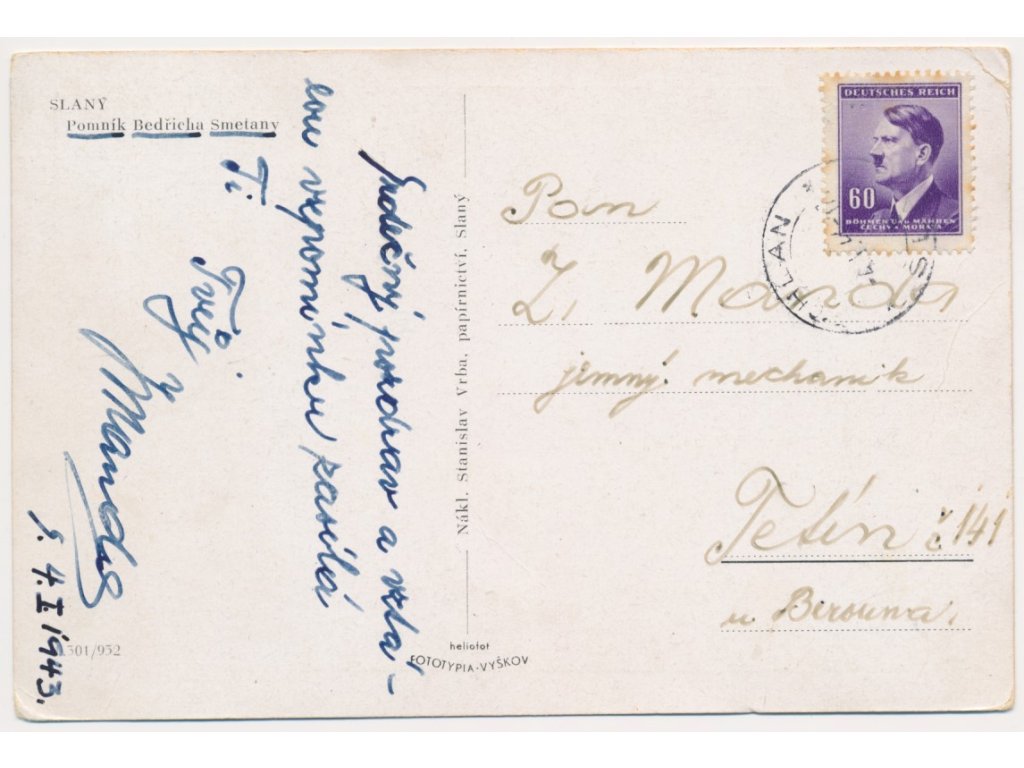 SLANÝ
Pomník Bedřicha Smetany
Srdečný pozdrav a vzlá-
vzpomínku zasílá
Ti
Tvůj
Manda
4. I. 1943.
301/932
Nákl. Stanislav Vrba, papírnictví, Slaný
heliofot
FOTOTYPIA-VYŠKOV
DEUTSCHES REICH
60
BÖHMEN UND MÄHREN
ČECHY A MORAVA
Pan
Z. Manda
jemný mechanik
Tetín č 141
u Berouna.